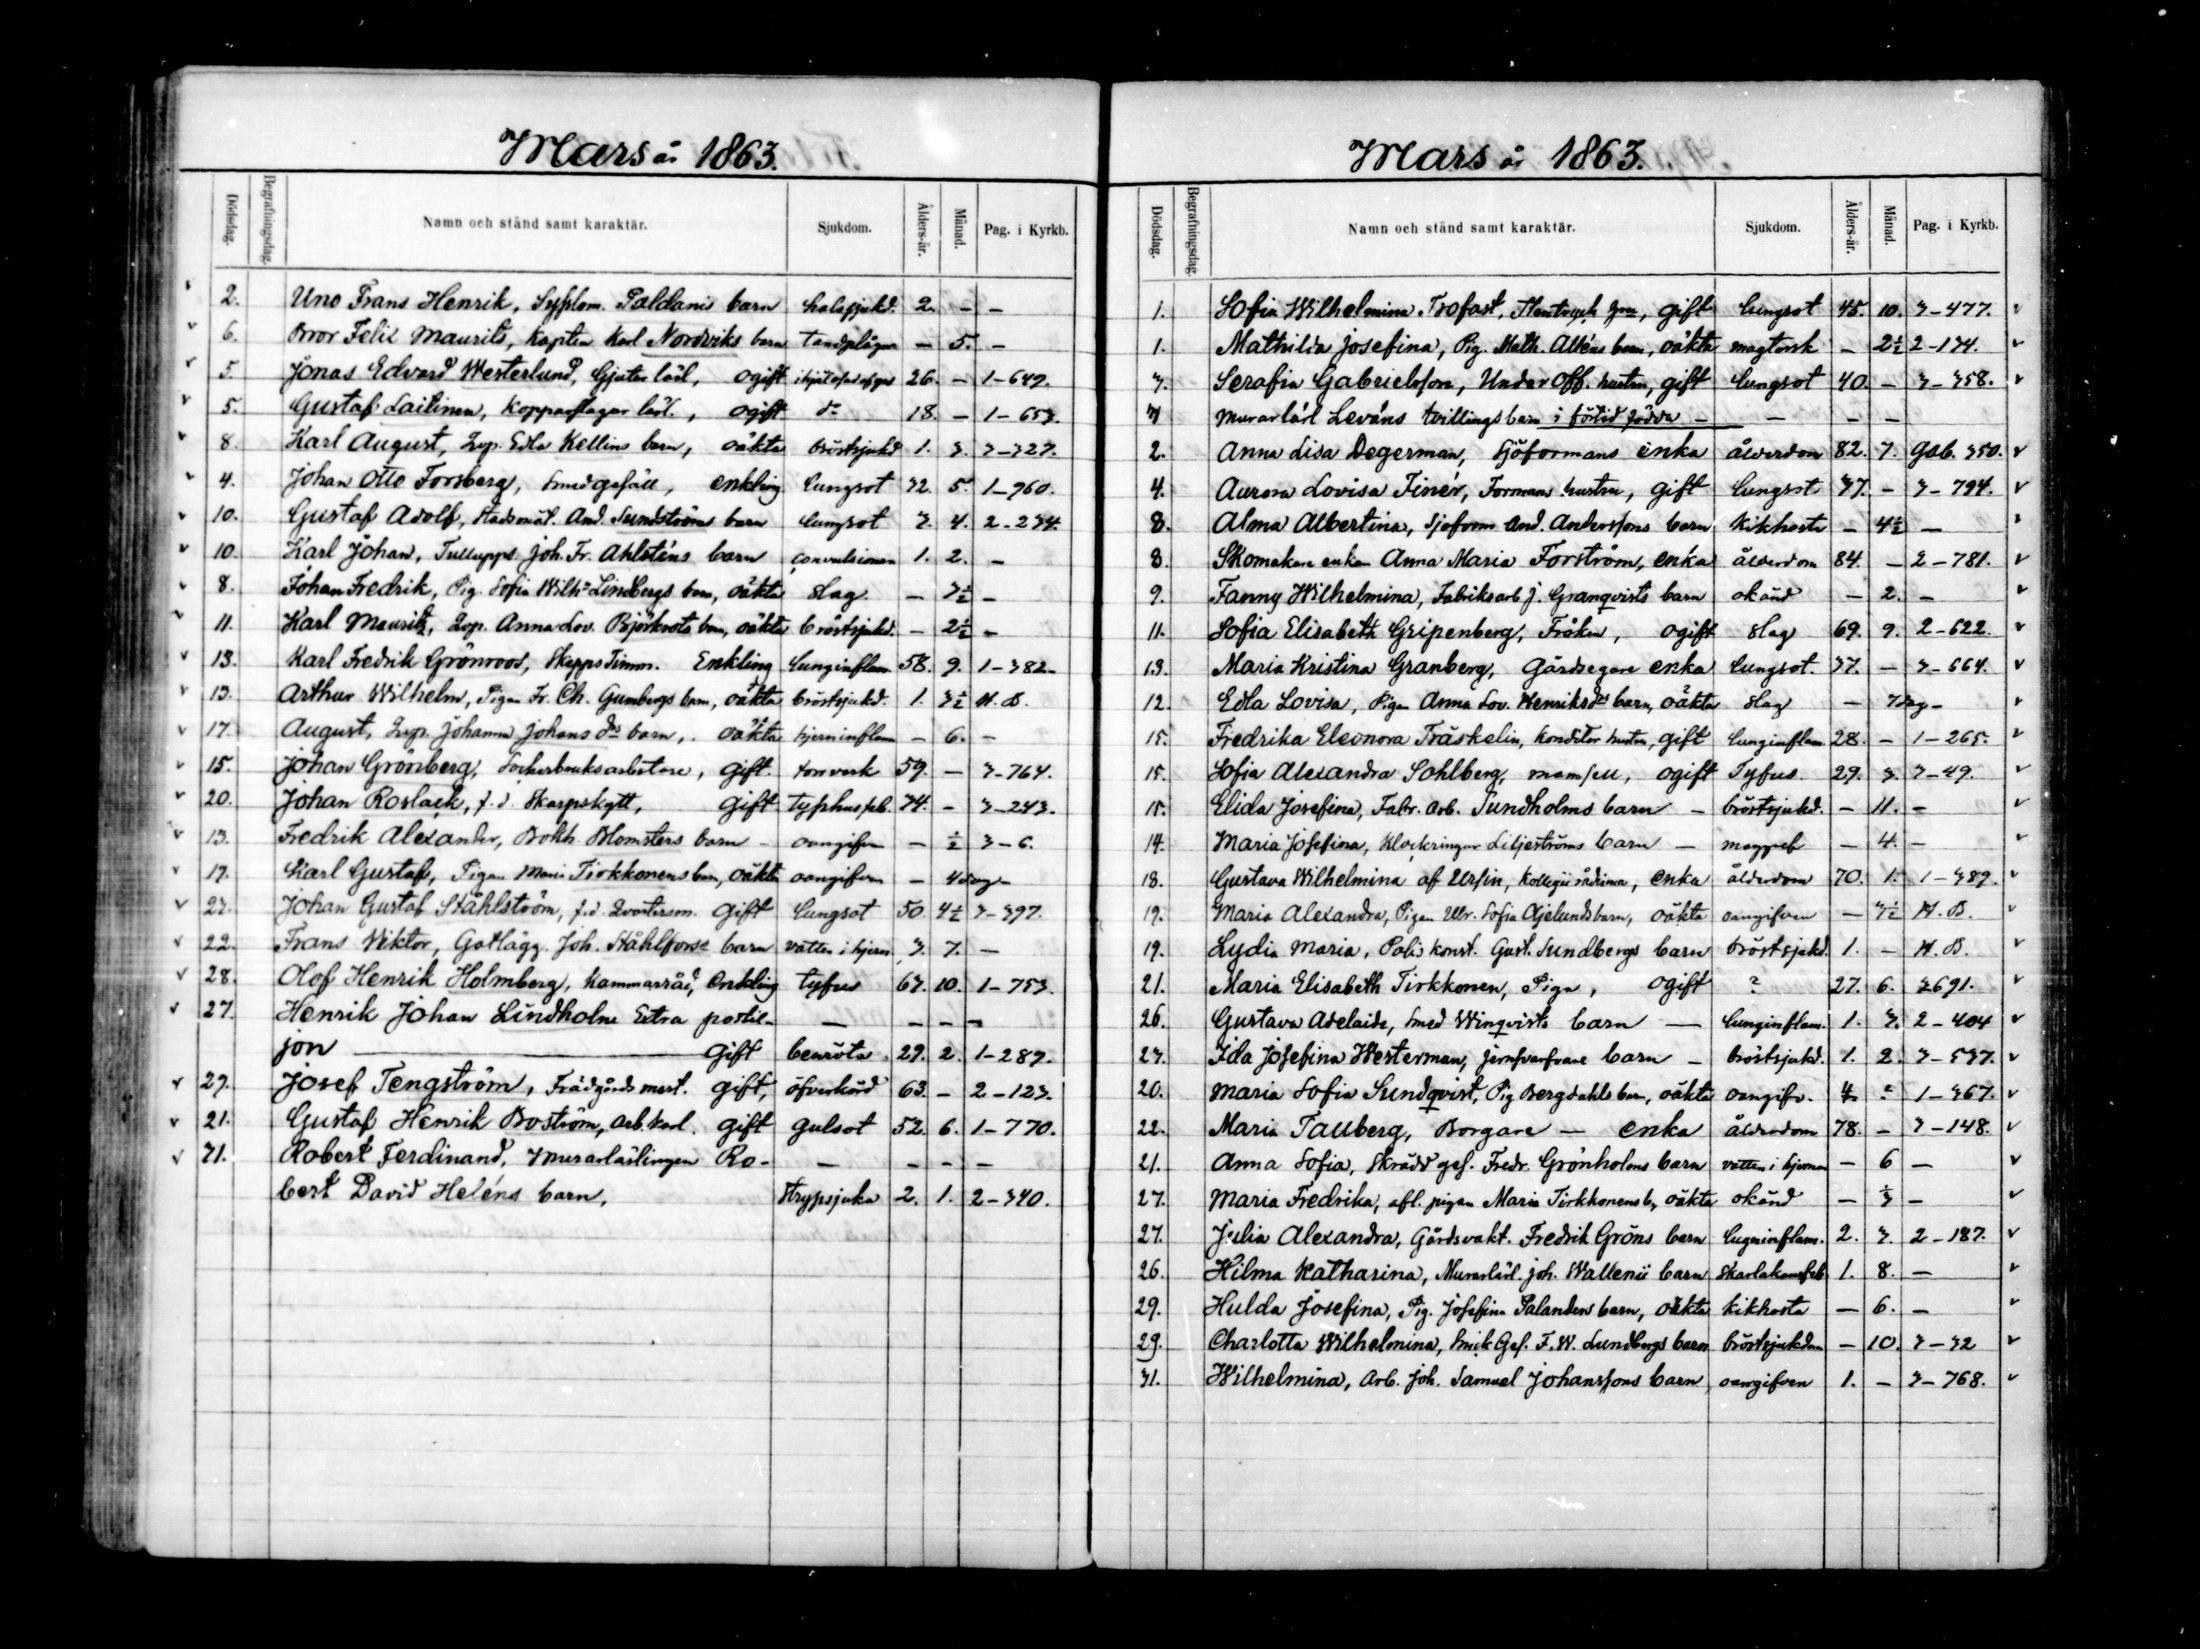 Mars år 1863.
Dödsdag. Begrafningsdag. Namn och stånd samt karaktär. Sjukdom. Ålders-år. Månad. Pag. i Kyrkb.
2. Uno Frans Henrik, Paldanis barn halssjukd. 2. – –
6. Bror Felix Maurits, Kapten Karl Nordviks barn tandplågor – 5. –
5. Jonas Edvard Westerlund, Gjutar lärl, ogift 26. – 1–649.
5. Gustaf Laitinen, Kopparslagar lärl., ogift do 18. – 1–653.
8. Karl August, Inp. Edla Kellins barn, oäkta bröstsjukd 1. 3. 3–327.
4. Johan Otto Forsberg, Smedgesäll, enkling lungsot 32. 5. 1–960.
10. Gustaf Adolf, And. Sundströms barn lungsot 3. 4. 2–234.
10. Karl Johan, Tullupps. Joh. Fr. Ahlsténs barn convulsioner 1. 2. –
8. Johan Fredrik, Pig. Sofia Wilha Lindbergs barn, oäkta slag – 3½ –
11. Karl Mauritz, Inp. Anna Lov. Björkroots barn, oäkta bröstsjukd. – 2½ –
13. Karl Fredrik Grönroos, Skepps Timm. Enkling lunginflam. 58. 9. 1–382.
13. Arthur Wilhelm, Pigan Fr. Ch. Gumbergs barn, oäkta bröstsjukd. 1. 3½ H. B.
17. August, Inp. Johanna Johans dr barn, oäkta hjerninflam – 6. –
15. Johan Grönberg, Sockerbruksarbetare, gift. torrverk 59. – 3–764.
20. Johan Roslack, f. d. Skarpskytt, gift typhusfeb. 34. – 3–243.
13. Fredrik Alexander, Bokh. Blomsters barn – oangifven – ½ 3–6.
19. Karl Gustaf, Pigan Maria Tirkkonens barn, oäkta oangifven – 4 dag –
23. Johan Gustaf Ståhlström, f.d. gift lungsot 50. 4½ 3–397.
22. Frans Viktor, Gatlägg. Joh. Ståhlfors barn vatten i hjern 3. 7. –
28. Olof Henrik Holmberg, Kammarråd, enkling tyfus 67. 10. 1–753.
27. Henrik Johan Lindholm Extra postil- – – – –
jon gift benröta 29. 2. 1–289.
29. Josef Tengström, Trädgårds mast. gift, öfverkörd 63. – 2–123.
21. Gustaf Henrik Boström, Arb. karl. gift gulsot 52. 6. 1–770.
31. Robert Ferdinand, Murarlärlingen Ro- – – – –
bert David Heléns barn, Strypsjuka 2. 1. 2–340.
Mars år 1863.
Dödsdag. Begrafningsdag. Namn och stånd samt karaktär. Sjukdom. Ålders-år. Månad. Pag. i Kyrkb.
1. Sofia Wilhelmina Trofast, gift lungsot 45. 10. 3–477.
1. Mathilda Josefina, Pig. Math. Alléns barn, oäkta magtorsk – 2½ 2–134.
3. Serafia Gabrielsson, Under Off. hustru, gift lungsot 40. – 3–358.
Murar lärl Leváns tvillingsbarn i förtid födda – – – –
2. Anna Lisa Degerman, Sjöformans enka ålderdom 82. 7. Gsb. 350.
4. Aurora Lovisa Tinér, Formans hustru, gift lungsot 37. – 3–794.
8. Alma Albertina, And. Anderssons barn Kikhosta – 4½ –
8. Skomakare enkan Anna Maria Forström, enka ålderdom 84. – 2–781.
9. Fanny Wilhelmina, Fabriksarb J. Granqvists barn okänd – 2. –
11. Sofia Elisabeth Gripenberg, Fröken, ogift slag 69. 9. 2–622.
13. Maria Kristina Granberg, Gårdsegare enka lungsot. 37. – 3–664.
12. Edla Lovisa, Pigan Anna Lov. Henriksdrs barn, oäkta slag – 7 dag –
15. Fredrika Eleonora Träskelin, Konditor hustru, gift lunginflam. 28. – 1–265.
15. Sofia Alexandra Sohlberg, mamsell, ogift Tyfus 29. 3. 3–49.
15. Elida Josefina, Fabr. Arb. Sundholms barn – bröstsjukd. – 11. –
14. Maria Josefina, Klockringar Liljeströms barn – – 4. –
18. Gustava Wilhelmina af Ursin, Kollegii rådinna, enka ålderdom 70. 1. 1–389.
19. Maria Alexandra, Pigan Ulr. Sofia Ajelunds barn, oäkta oangifven – 3½ H. B.
19. Lydia Maria, Polis konst. Gust. Sundbergs barn bröstsjukd 1. – H. B.
21. Maria Elisabeth Tirkkonen, Piga, ogift ? 27. 6. 3691.
26. Gustava Adelaide, Smed Winqvists barn – lunginflam. 1. 3. 2–404
23. Ida Josefina Westerman, barn – bröstsjukd. 1. 2. 3–537.
20. Maria Sofia Sundqvist, Pig Bergdahls barn, oäkta oangifv. 4. ? 1–367.
22. Maria Tauberg, Borgare – enka ålderdom 78. – 3–148.
21. Anna Sofia, Skrädd ges. Fredr. Grönholms barn vatten i hjernan – 6 –
27. Maria Fredrika, afl. pigan Maria Tirkkonens b., oäkta okänd – –
27. Julia Alexandra, Gårdsvakt. Fredrik Gröns barn lunginflam. 2. 3. 2–187.
26. Hilma Katharina, Murarlärl. Joh. Wallenii barn Skarlakansfeb 1. 8. –
29. Hulda Josefina, Pig. Josefina Salandens barn, oäkta kikhosta – 6. –
29. Charlotta Wilhelmina, Ges. F. W. Lundbergs barn bröstsjukdom – 10. 3–32
31. Wilhelmina, Arb. Joh. Samuel Johanssons barn oangifven 1. – 3–768.